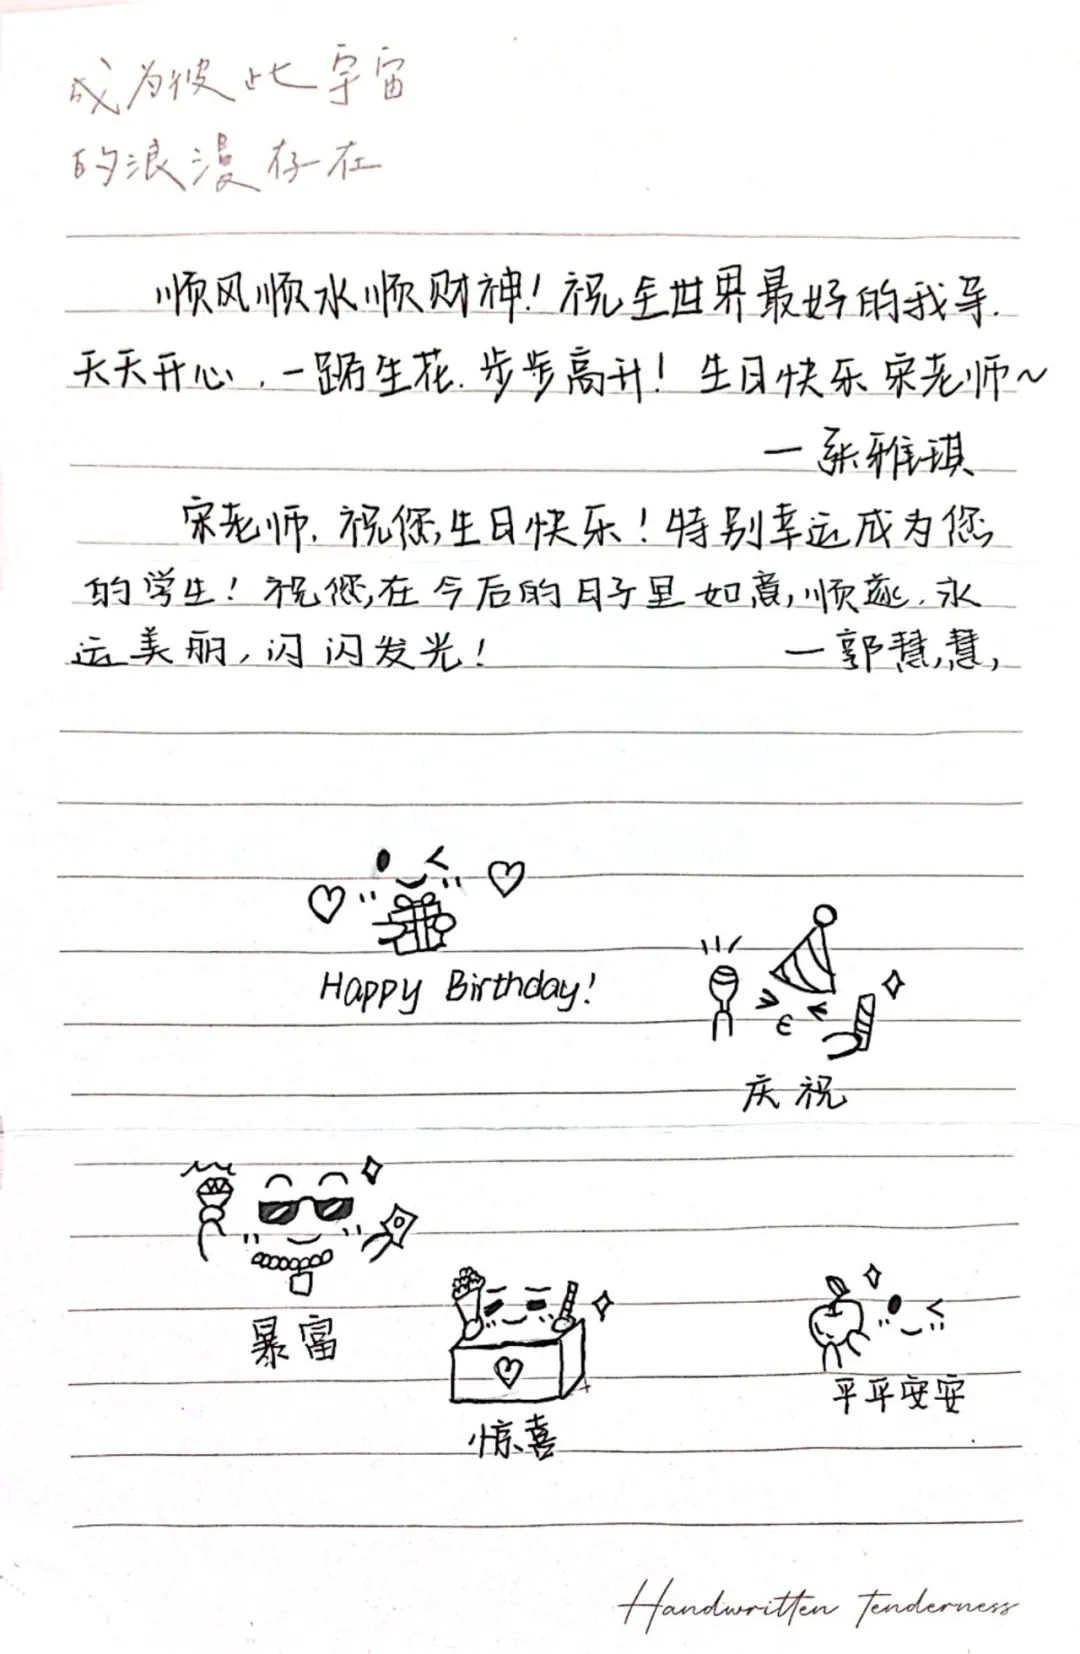 成为彼此宇宙
的浪漫存在
顺风顺水顺财神！祝全世界最好的我导.
天天开心，一路生花.步步高升！生日快乐宋老师～
一张雅琪
宋老师，祝您生日快乐！特别幸运成为您
的学生！祝您在今后的日子里如意顺遂.永
远美丽，闪闪发光！ 一郭慧慧
Happy Birthday!
庆祝
暴富
惊喜
平平安安
Handwritten tenderness